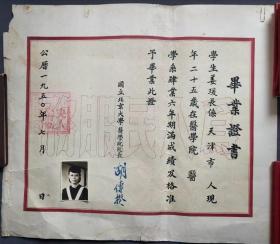 畢業證書
學生姜瑗長係天津市人現
年二十五歲在醫學院醫
學系肄業六年期滿成績及格准
予畢業此證
國立北京大學醫學院院長 胡傳揆
公曆一九五〇年 月 日
務服民